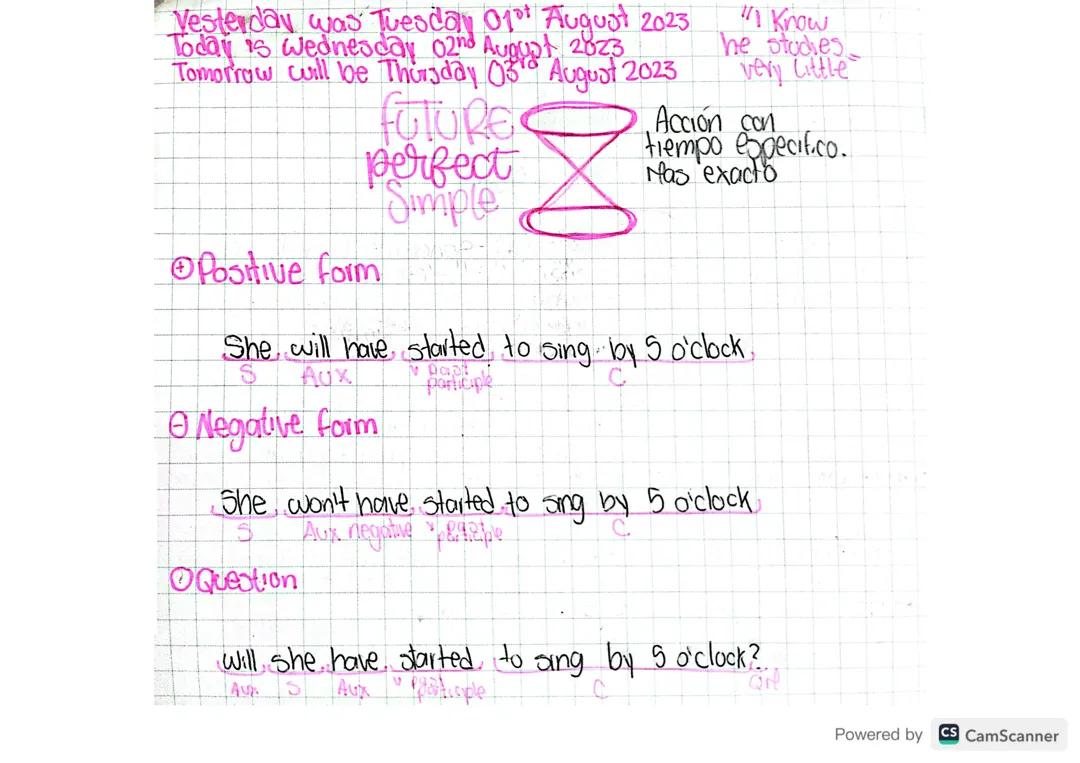 Yesterday was Tuesday 01st August 2023
Today is Wednesday 02nd August 2023
Tomorrow will be Thursday 03rd August 2023
"I Know
he studies
very little"
FUTURE
perfect
Simple
Acción con
tiempo especifico.
Mas exacto
+ Positive form
She will have started to sing by 5 o'clock
S Aux v past participle C
- Negative form
She won't have started to sing by 5 o'clock
S Aux negative v participle C
? Question
Will she have started to sing by 5 o'clock?
Aux S Aux v participle C
Powered by CS CamScanner